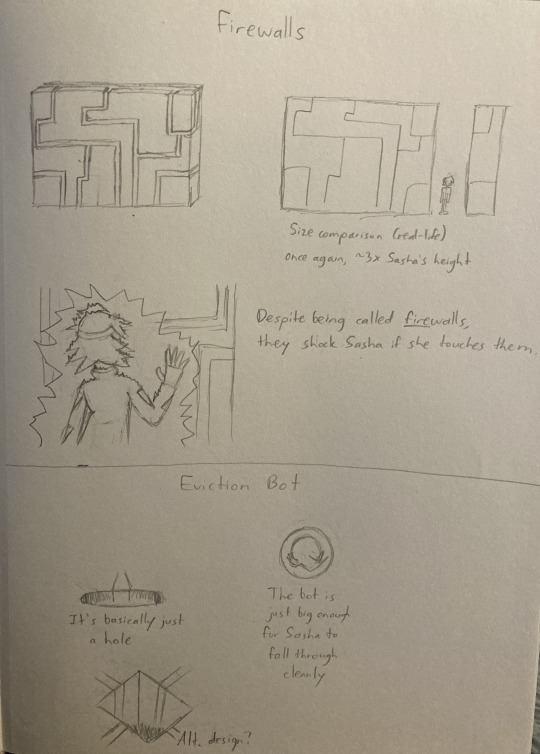 Firewalls
Size comparison (real-life)
once again, ~3x Sasha's height
Despite being called firewalls,
they shock Sasha if she touches them.
Eviction Bot
It's basically just
a hole
The bot is
just big enough
for Sasha to
fall through
cleanly
Alt. design?